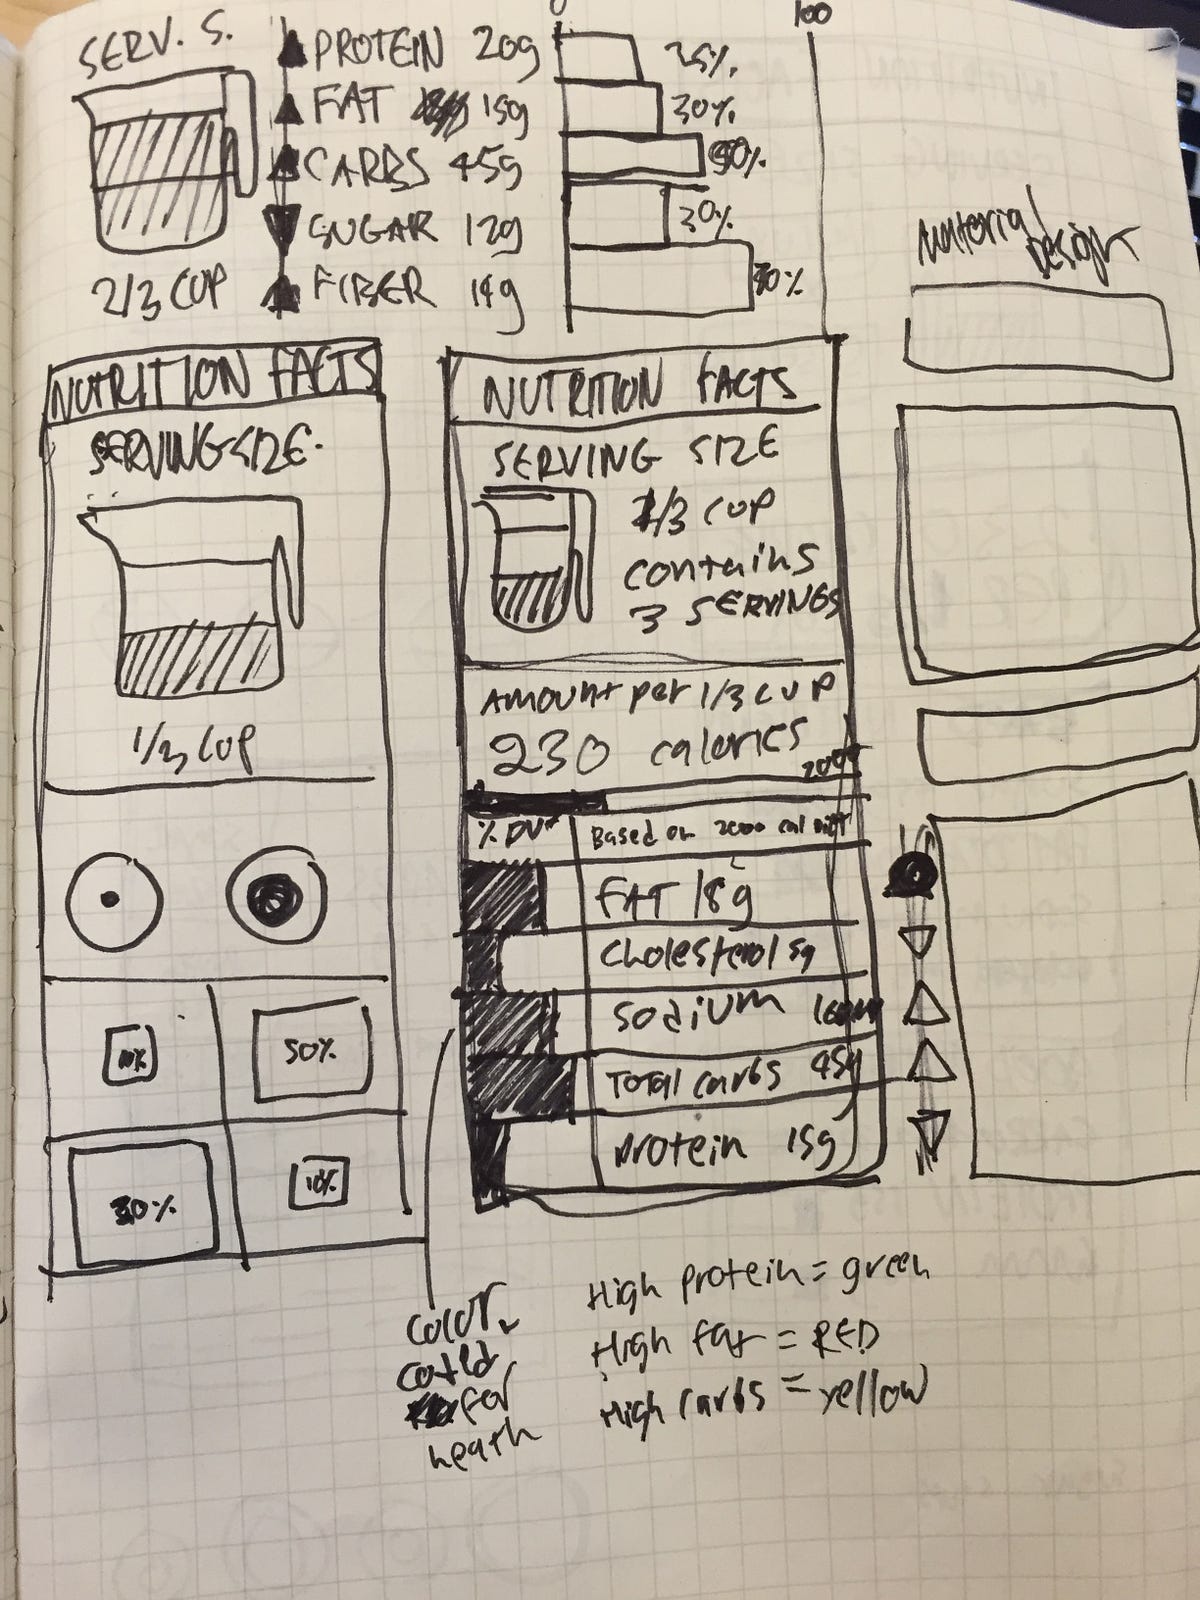 SERV. S.
2/3 CUP
PROTEIN 20g
FAT 15g
CARBS 45g
SUGAR 12g
FIBER 14g
0
100
30%
30%
Material
Design
NUTRITION FACTS
SERVING SIZE.
1/3 CUP
50%
30%
10%
NUTRITION FACTS
SERVING SIZE
1/3 CUP
contains
3 SERVINGS
Amount per 1/3 CUP
230 calories
% DV*
Based on 2000 cal diet
FAT 18g
Cholesterol 5g
Sodium
Total carbs 45g
protein 15g
color
coded
for
heath
High protein = green
High fat = RED
High carbs = yellow